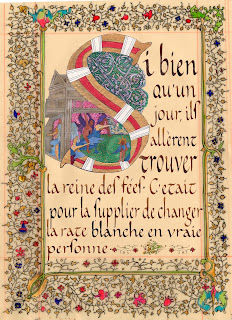 Si bien
qu'un
jour, ils
allèrent
trouver
la reine des fées. C'etait
pour la supplier de changer
la rate blanche en vraie
personne